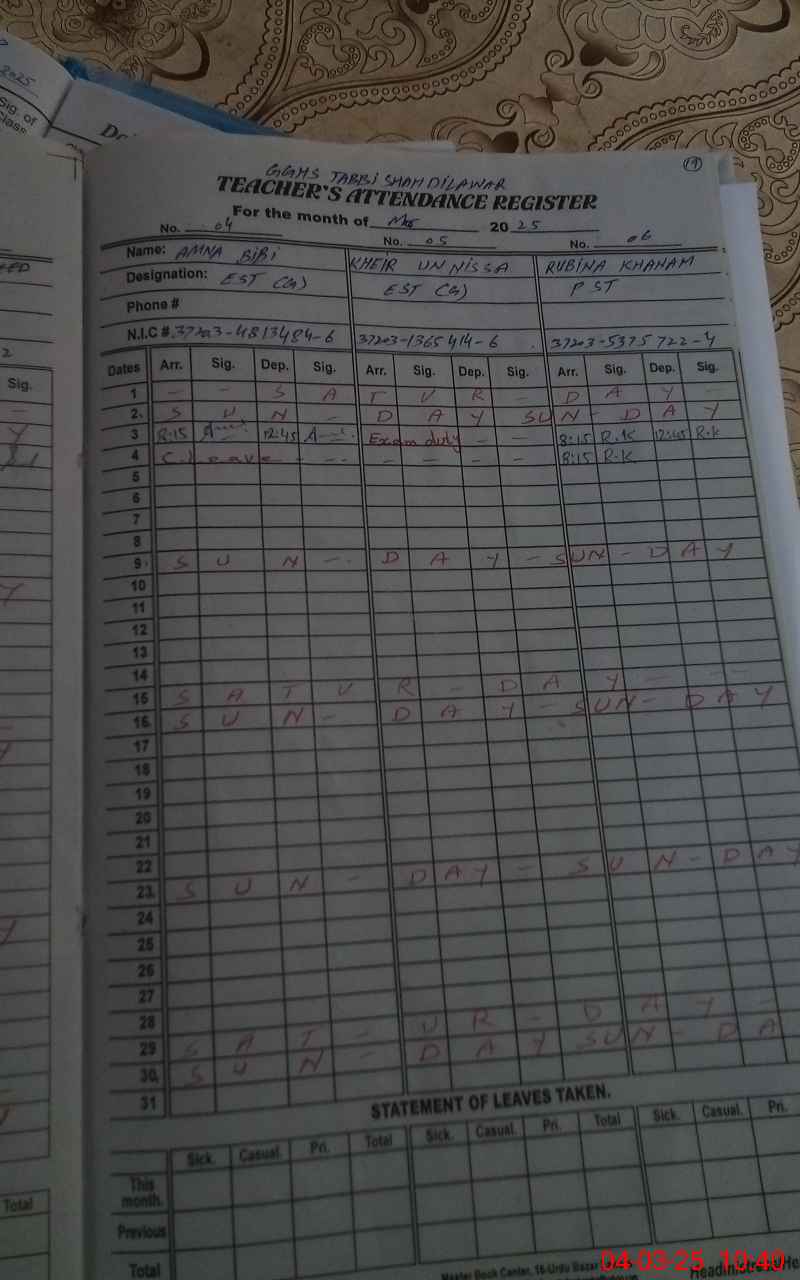 2025
Sig. of
Class
(9)
GGHS TABBI SHAH DILAWAR
TEACHER'S ATTENDANCE REGISTER
For the month of Mar 2025
No. 04 No. 05 No. 06
Name: AMNA BIBI KHEIR UN NISSA RUBINA KHANAM
Designation: EST (G) EST (G) PST
Phone #
N.I.C #. 37203-4813484-6 37203-1365414-6 37203-5375722-4
Dates Arr. Sig. Dep. Sig. Arr. Sig. Dep. Sig. Arr. Sig. Dep. Sig.
1 - - S A T U R - D A Y -
2. S U N - D A Y SUN - D A Y
3 8:15 12:45 Exam duty - - 8:15 R.K 12:45 R.K
4 C.Leave - - - - - - - 8:15 R.K
5
6
7
8
9. S U N - - D A Y - SUN - D A Y
10
11
12
13
14
15 S A T U R - D A Y - - -
16. S U N - D A Y - SUN - D A Y
17
18
19
20
21
22
23. S U N - D A Y - S U N - D A Y
24
25
26
27
28
29 S A T - U R - D A Y -
30. S U N - D A Y SUN - D A
31
STATEMENT OF LEAVES TAKEN.
Sick. Casual. Pri. Total Sick. Casual. Pri. Total Sick. Casual. Pri.
This
month.
Previous
Total
Sig.
Total
Master Book Center, 16-Urdu Bazar
04-03-25 10:40